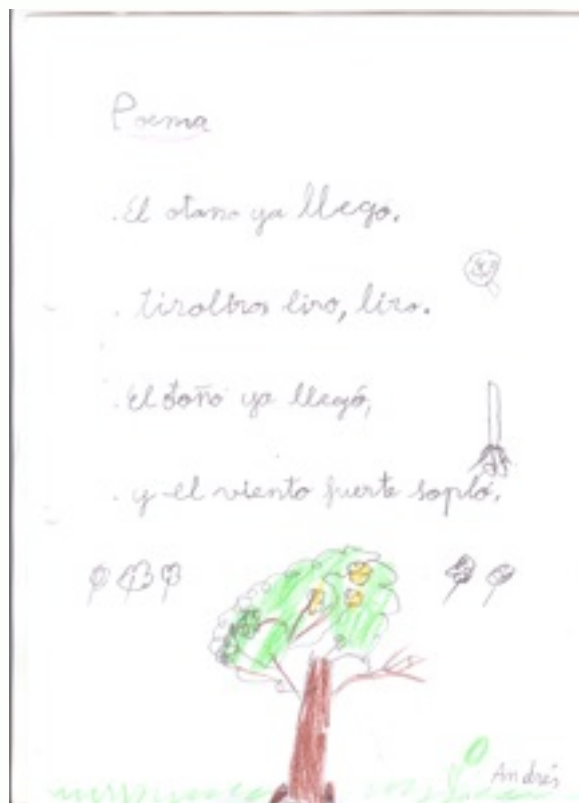 Poema
. El otaño ya llegó.
. tiroliros liro, liro.
. El otoño ya llegó,
. y el viento fuerte sopló.
Andrés